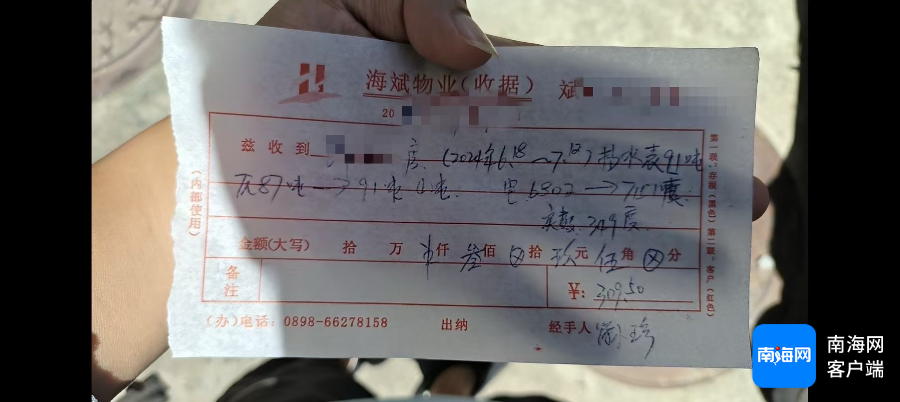 海斌物业(收据) 斌
20
兹收到 房(2024年6.18～7.18)抄水表91吨
底87吨→91吨 4吨. 电6802→7151度.
实数:349度.
金额(大写) 拾 万 仟 叁佰 拾 玖元 伍角 分
备注
¥: 309.50
(办)电话: 0898-66278158 出纳 经手人
(内部使用)
第一联:存根(黑色)第二联:客户(红色)
南海网
南海网
客户端